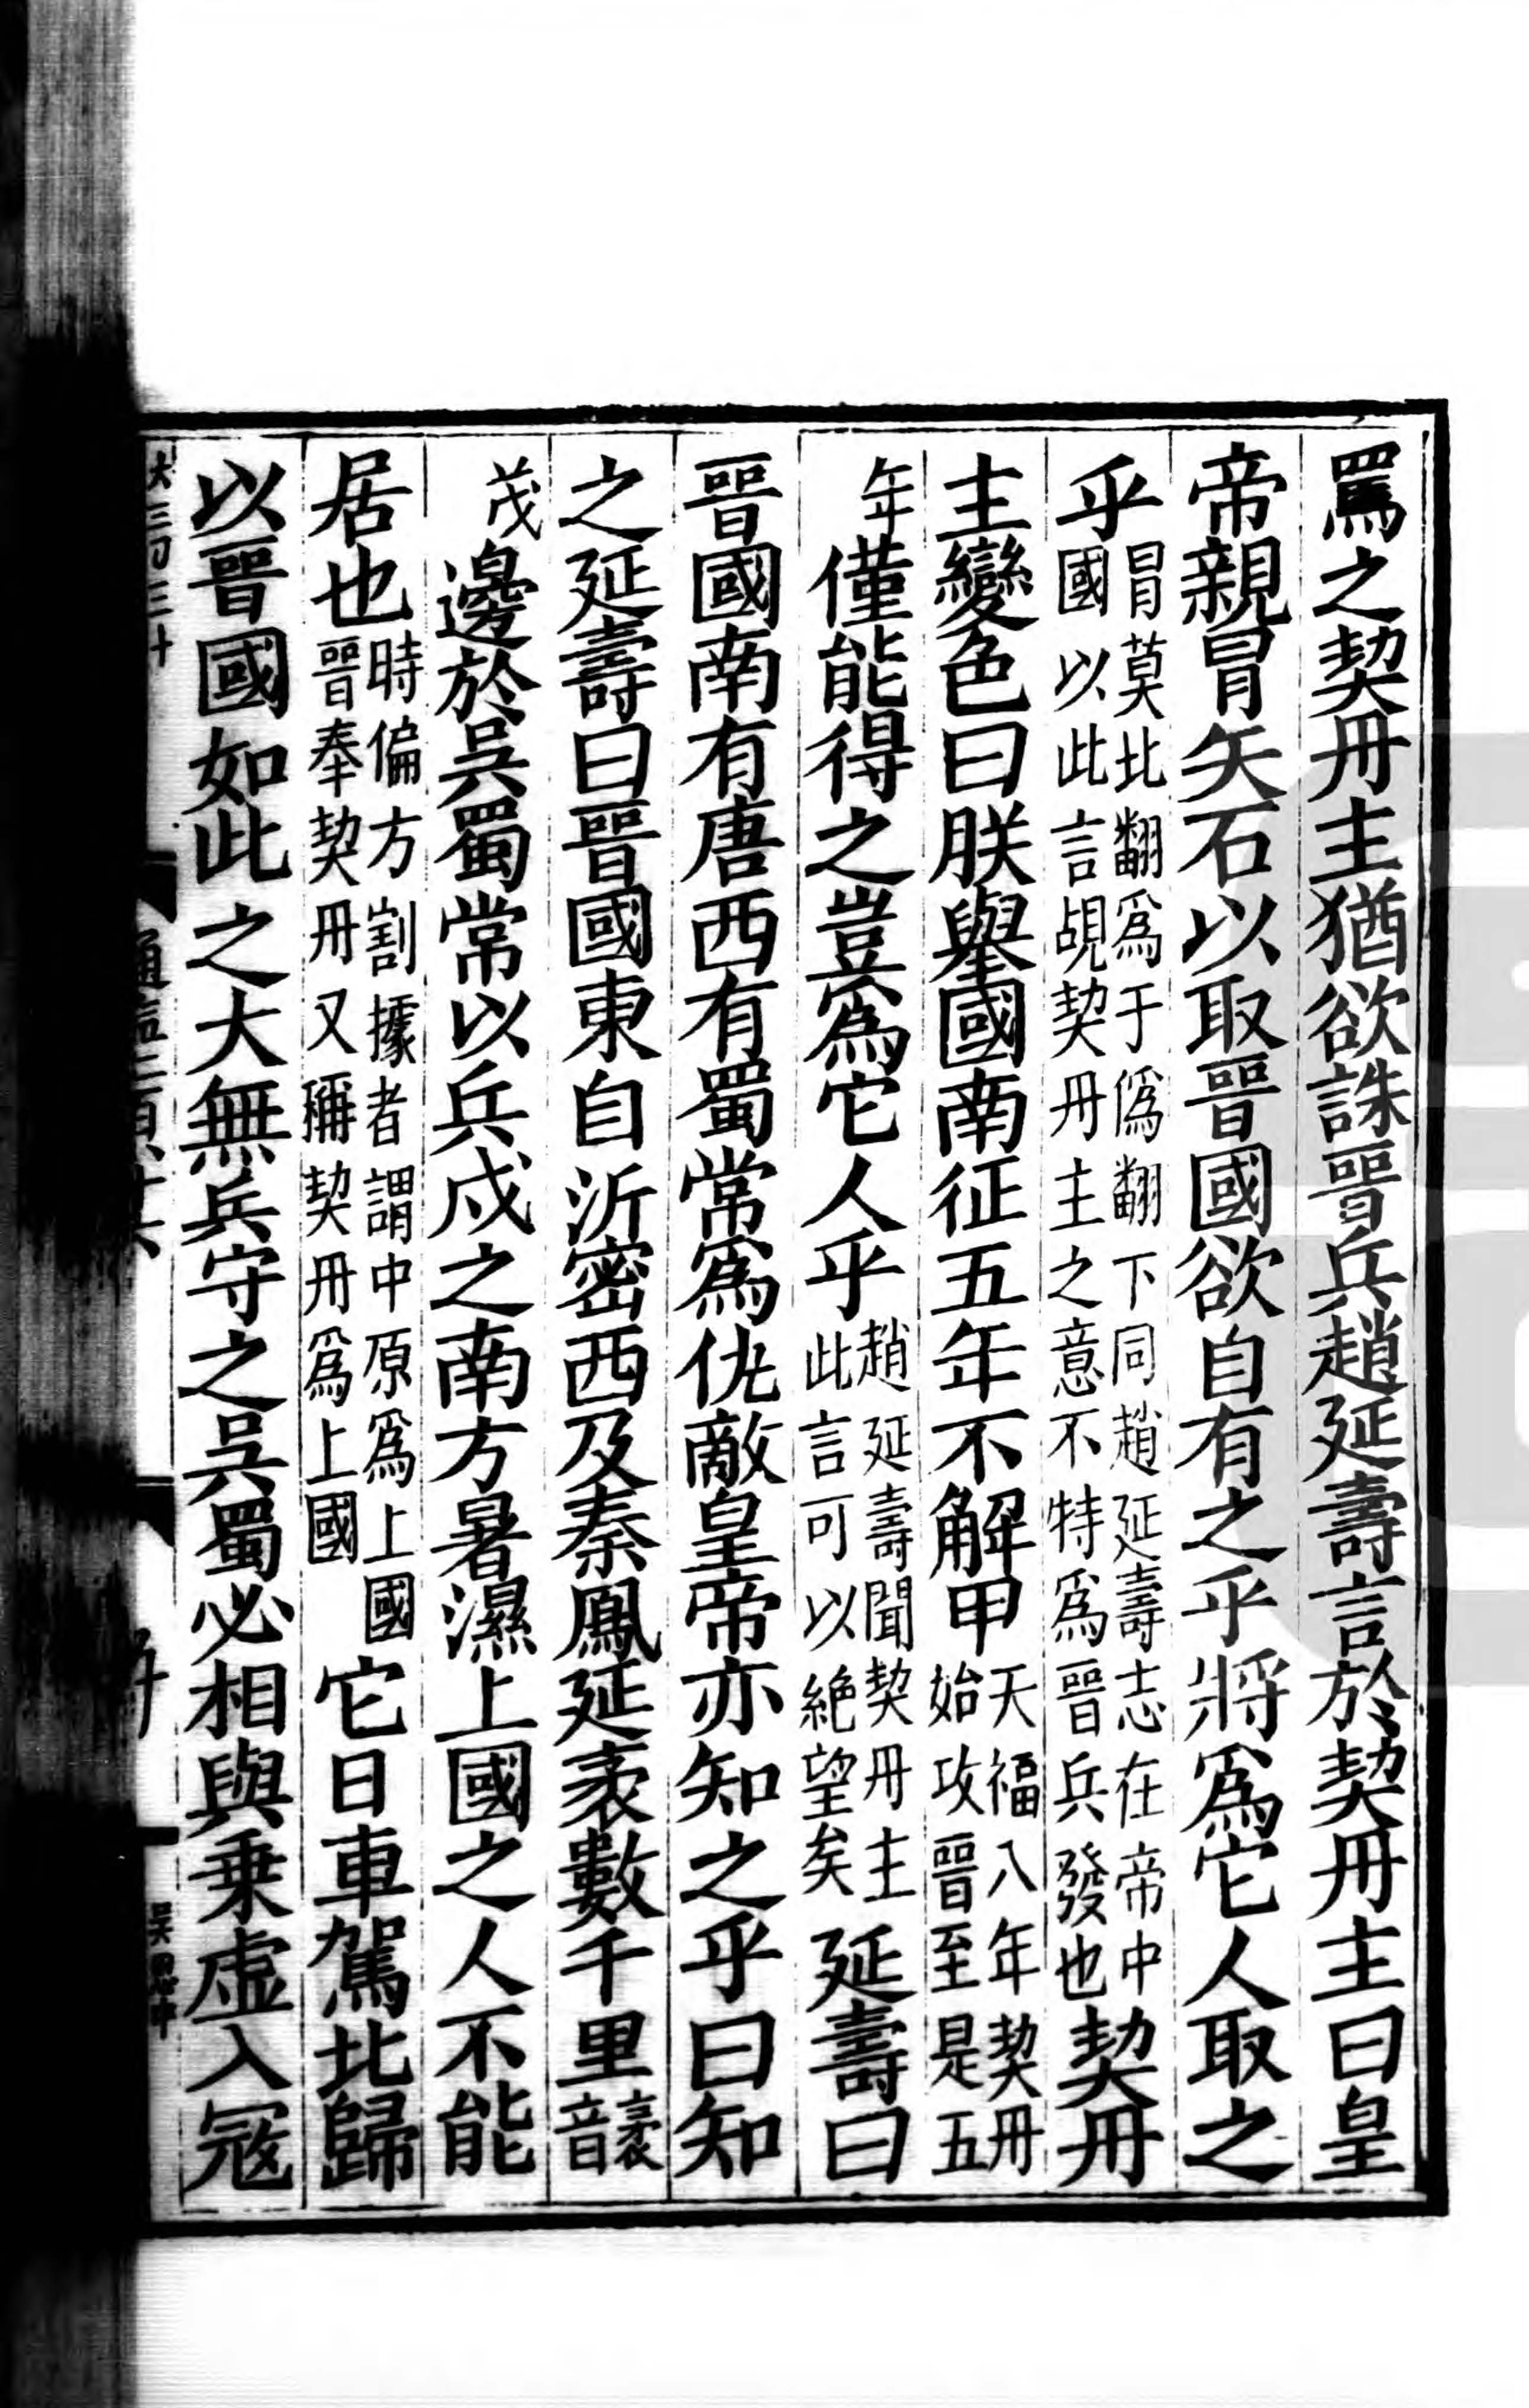 罵之契丹主猶欲誅晉兵趙延壽言於契丹主曰皇
帝親冒矢石以取晉國欲自有之乎將爲它人取之
乎冒莫北翻爲于僞翻下同趙延壽志在帝中國以此言覘契丹主之意不特爲晉兵發也契丹
主變色曰朕舉國南征五年不解甲天福八年契丹始攻晉至是五
年僅能得之豈爲它人乎趙延壽聞契丹主此言可以絶望矣延壽曰
晉國南有唐西有蜀常爲仇敵皇帝亦知之乎曰知
之延壽曰晉國東自沂密西及秦鳳延袤數千里袤音
茂邊於吳蜀常以兵戍之南方暑濕上國之人不能
居也時偏方割據者謂中原爲上國晉奉契丹又稱契丹爲上國它日車駕北歸
以晉國如此之大無兵守之吳蜀必相與乗虛入冦